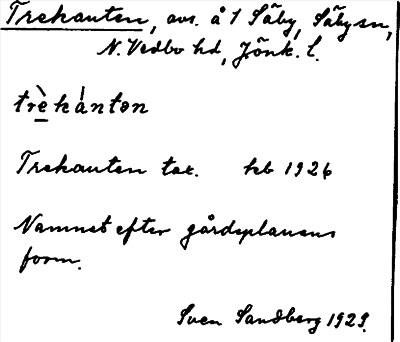 Trekanten, avs. å 1 Säby, Säby sn,
N. Vedbo hd, Jönk. l.
trè̠kántən
Trekanten tax. hb 1926
Namnet efter gårdsplanens
form.
Sven Sandberg 1929.